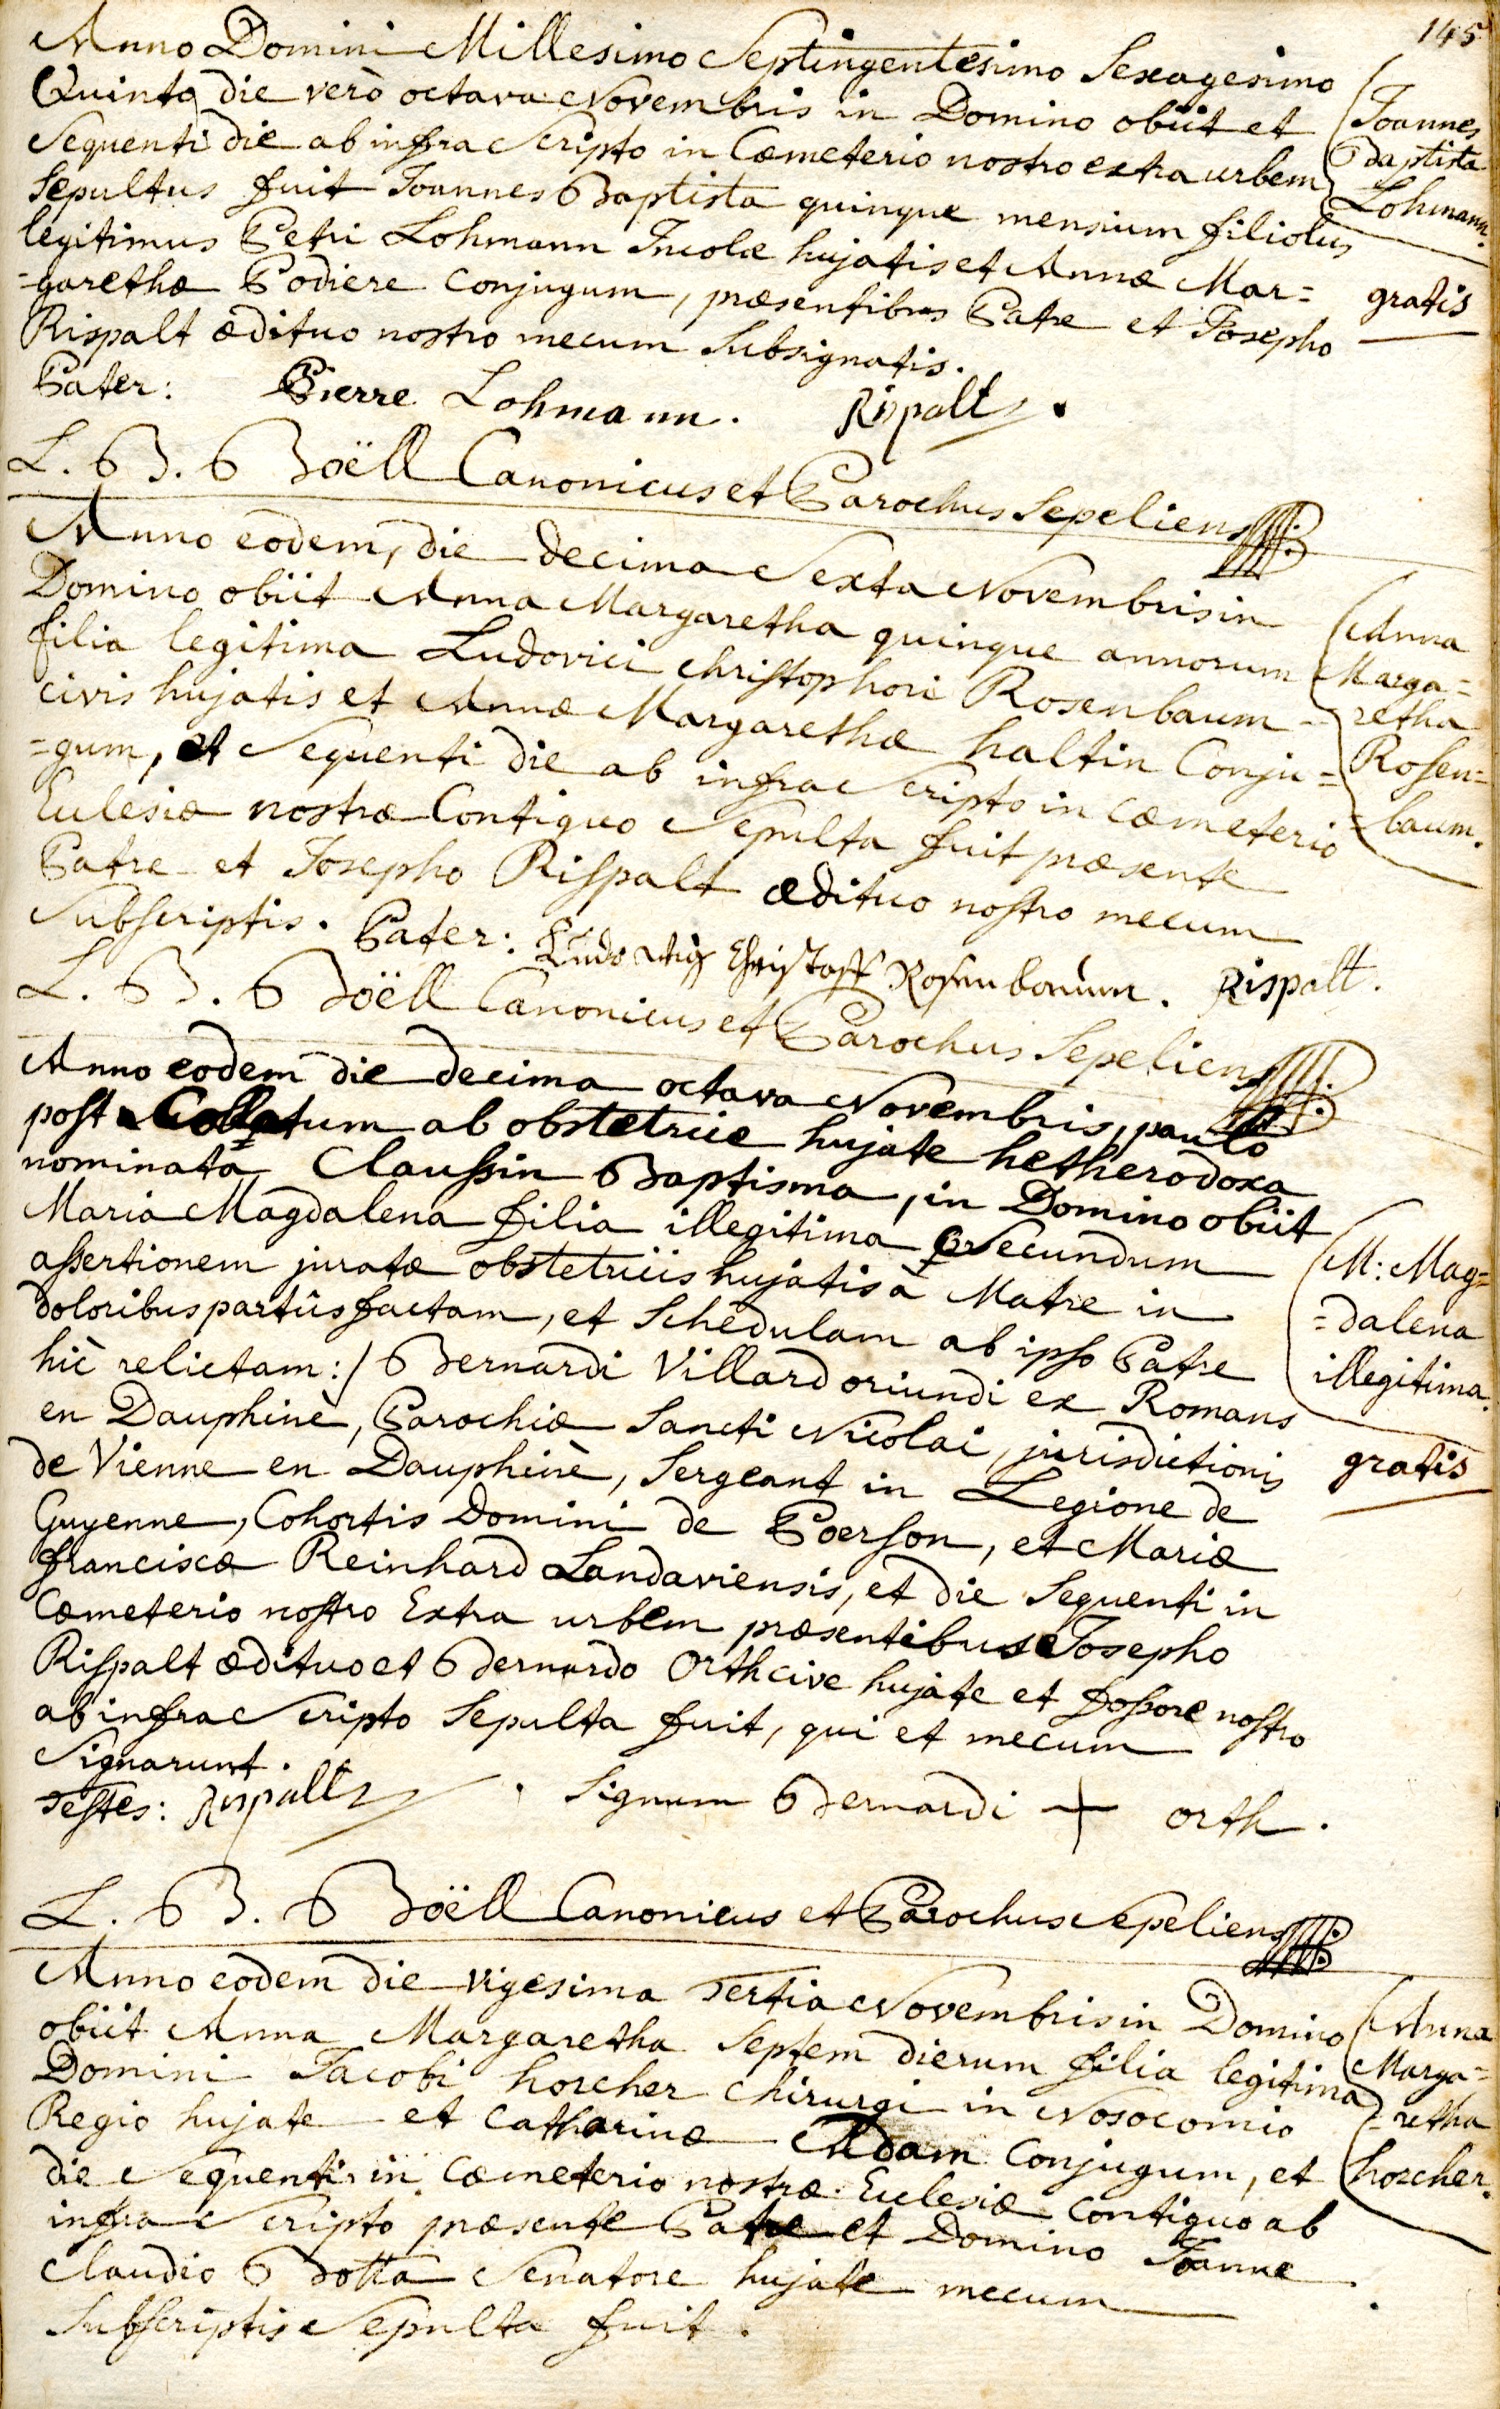 145
Anno Domini Millesimo Septingentesimo Sexagesimo
Quinto die verò octava Novembris in Domino obiit et
Sequenti die ab infra Scripto in Cœmeterio nostro extra urbem
Sepultus fuit Joannes Baptista quinque mensium filiolus
legitimus Petri Lohmann Incolæ hujatis et Annæ Mar=
=garethæ Podiere conjugum, præsentibus Patre et Josepho
Rispalt ædituo nostro mecum Subsignatis.
Joannes
Baptista
Lohmann.
gratis
Pater: Pierre Lohmann. Rispalt.
L. B. Boëll Canonicus et Parochus Sepeliens
Anno eodem, die decima Sexta Novembris in
Domino obiit Anna Margaretha quinque annorum
filia legitima Ludovici Christophori Rosenbaum
civis hujatis et Annæ Margarethæ haltin Conju=
=gum, et Sequenti die ab infra Scripto in cœmeterio
Eclesiæ nostræ Contiguo Sepulta fuit præsente
Patre et Josepho Rispalt ædituo nostro mecum
Subscriptis. Pater: Ludowig Christoff Rosenbaum. Rispalt.
Anna
Marga=
=retha
Rosen=
=baum.
L. B. Boëll Canonicus et Parochus Sepeliens
Anno eodem die decima octava Novembris, paulo
post Collatum ab obstetrice hujate hetherodoxa
nominata Claussin Baptisma, in Domino obiit
Maria Magdalena filia illegitima Secundum
assertionem juratæ obstetricis hujatis à Matre in
doloribus partûs factam, et Schedulam ab ipso Patre
hic relictam:/ Bernardi Villard oriundi ex Romans
en Dauphinè, Parochiæ Sancti Nicolai, jurisdictionis
de Vienne en Dauphinè, Sergeant in Legione de
Guyenne, Cohortis Domini de Poerson, et Mariæ
franciscæ Reinhard Landaviensis, et die Sequenti in
Cœmeterio nostro Extra urbem præsentibus Josepho
Rispalt ædituo et Bernardo Orth cive hujate et fossore nostro
ab infra Scripto Sepulta fuit, qui et mecum
Signarunt.
M: Mag=
=dalena
illegitima.
gratis
Testes: Rispalt. Signum Bernardi + orth.
L. B. Boëll Canonicus et Parochus Sepeliens
Anno eodem die vigesima Tertia Novembris in Domino
obiit Anna Margaretha Septem dierum filia legitima
Domini Jacobi horcher Chirurgi in Nosocomio
Regio hujate et Catharinæ Adam Conjugum, et
die Sequenti in Cœmeterio nostræ Eclesiæ contiguo ab
infra Scripto præsente Patre et Domino Joanne
Claudio Botta Senatore hujate mecum
Subscriptis Sepulta fuit.
Anna
Marga=
=retha
horcher.